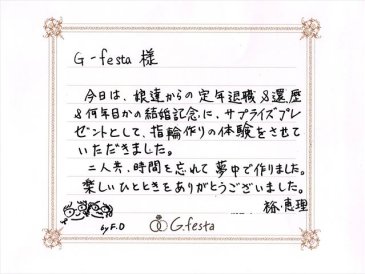 G-festa 様
今日は、娘達からの定年退職&還暦
&何年目かの結婚記念に、サプライズプレ
ゼントとして、指輪作りの体験をさせて
いただきました。
二人共、時間を忘れて夢中で作りました。
楽しいひとときをありがとうございました。
恵理
by F.D
G.festa